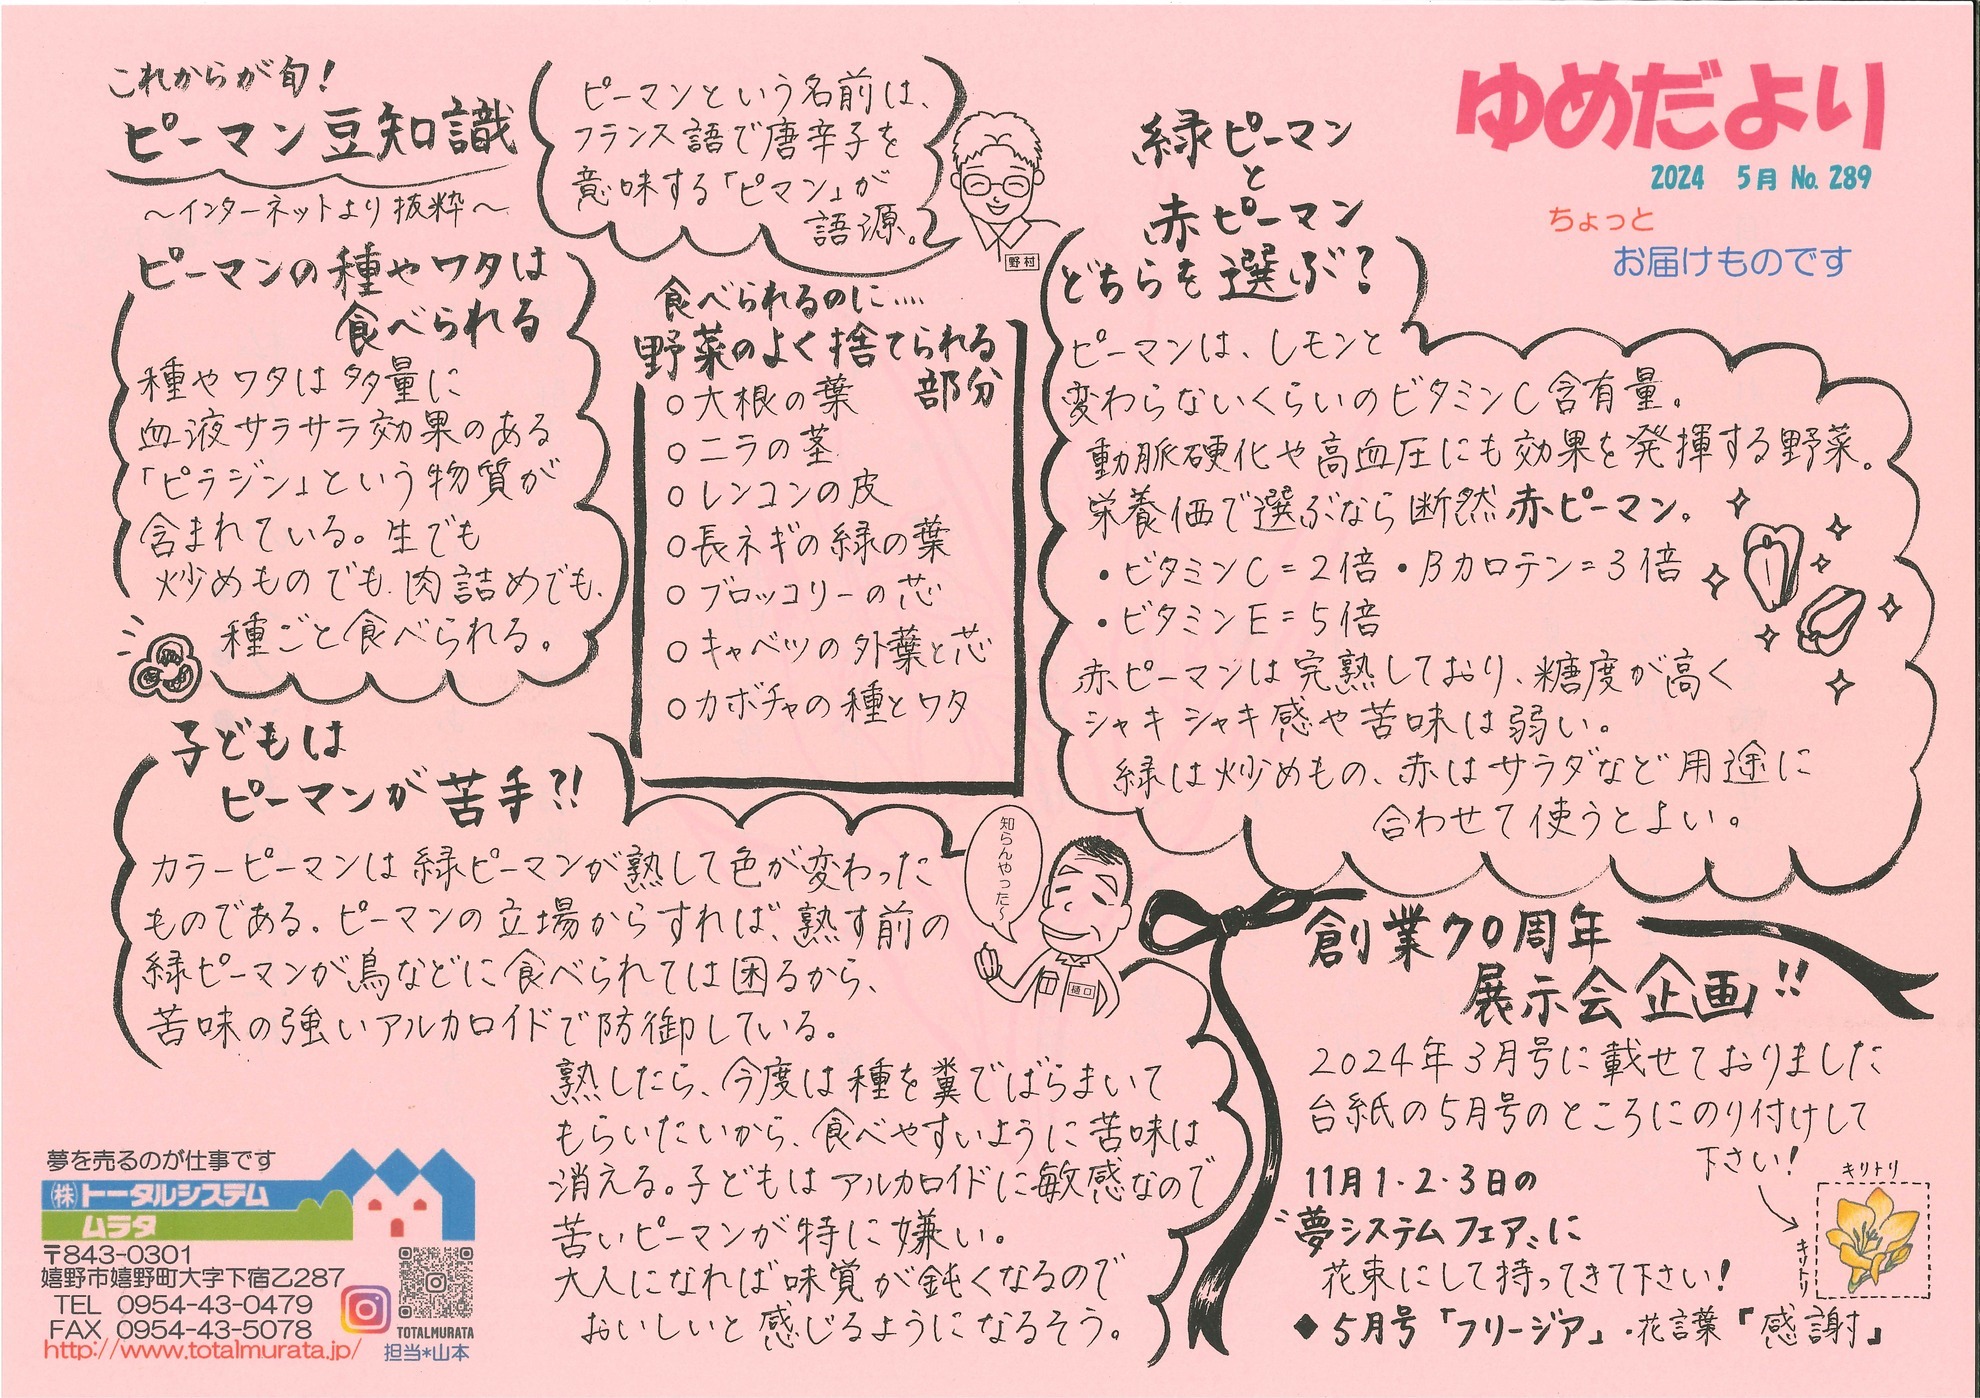 ゆめだより
2024 5月 No. 289
ちょっと
お届けものです
これからが旬!
ピーマン豆知識
～インターネットより抜粋～
ピーマンという名前は、
フランス語で唐辛子を
意味する「ピマン」が
語源。
野村
ピーマンの種やワタは
食べられる
種やワタは多量に
血液サラサラ効果のある
「ピラジン」という物質が
含まれている。生でも
炒めものでも、肉詰めでも、
種ごと食べられる。
食べられるのに‥‥
野菜のよく捨てられる
部分
○大根の葉
○ニラの茎
○レンコンの皮
○長ネギの緑の葉
○ブロッコリーの芯
○キャベツの外葉と芯
○カボチャの種とワタ
緑ピーマン
と
赤ピーマン
どちらを選ぶ?
ピーマンは、レモンと
変わらないくらいのビタミンC含有量。
動脈硬化や高血圧にも効果を発揮する野菜。
栄養価で選ぶなら断然赤ピーマン。
・ビタミンC=2倍・Bカロテン=3倍
・ビタミンE=5倍
赤ピーマンは完熟しており、糖度が高く
シャキシャキ感や苦味は弱い。
緑は炒めもの、赤はサラダなど用途に
合わせて使うとよい。
子どもは
ピーマンが苦手?!
カラーピーマンは緑ピーマンが熟して色が変わった
ものである。ピーマンの立場からすれば、熟す前の
緑ピーマンが鳥などに食べられては困るから、
苦味の強いアルカロイドで防御している。
熟したら、今度は種を糞でばらまいて
もらいたいから、食べやすいように苦味は
消える。子どもはアルカロイドに敏感なので
苦いピーマンが特に嫌い。
大人になれば味覚が鈍くなるので
おいしいと感じるようになるそう。
知らんやった～
樋口
創業70周年
展示会企画!!
2024年3月号に載せておりました
台紙の5月号のところにのり付けして
下さい!
キリトリ
キリトリ
11月1・2・3日の
〝夢システムフェア〟に
花束にして持ってきて下さい!
◆5月号「フリージア」・花言葉「感謝」
夢を売るのが仕事です
㈱トータルシステム
ムラタ
〒843-0301
嬉野市嬉野町大字下宿乙287
TEL 0954-43-0479
FAX 0954-43-5078
http://www.totalmurata.jp/
TOTALMURATA
担当*山本